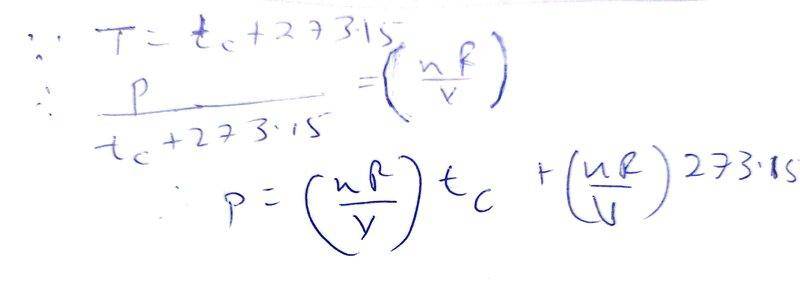 ∵ T = t_c + 273.15
∴ P / (t_c + 273.15) = (nR/V)
∴ P = (nR/V) t_c + (nR/V) 273.15